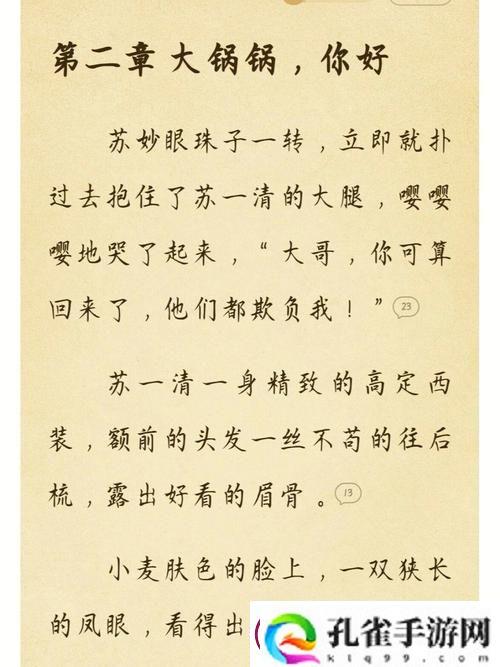 第二章 大锅锅，你好
苏妙眼珠子一转，立即就扑
过去抱住了苏一清的大腿，嘤嘤
嘤地哭了起来，“大哥，你可算
回来了，他们都欺负我！”23
苏一清一身精致的高定西
装，额前的头发一丝不苟的往后
梳，露出好看的眉骨。13
小麦肤色的脸上，一双狭长
的凤眼，看得出
孔雀手游网
ktq99.com